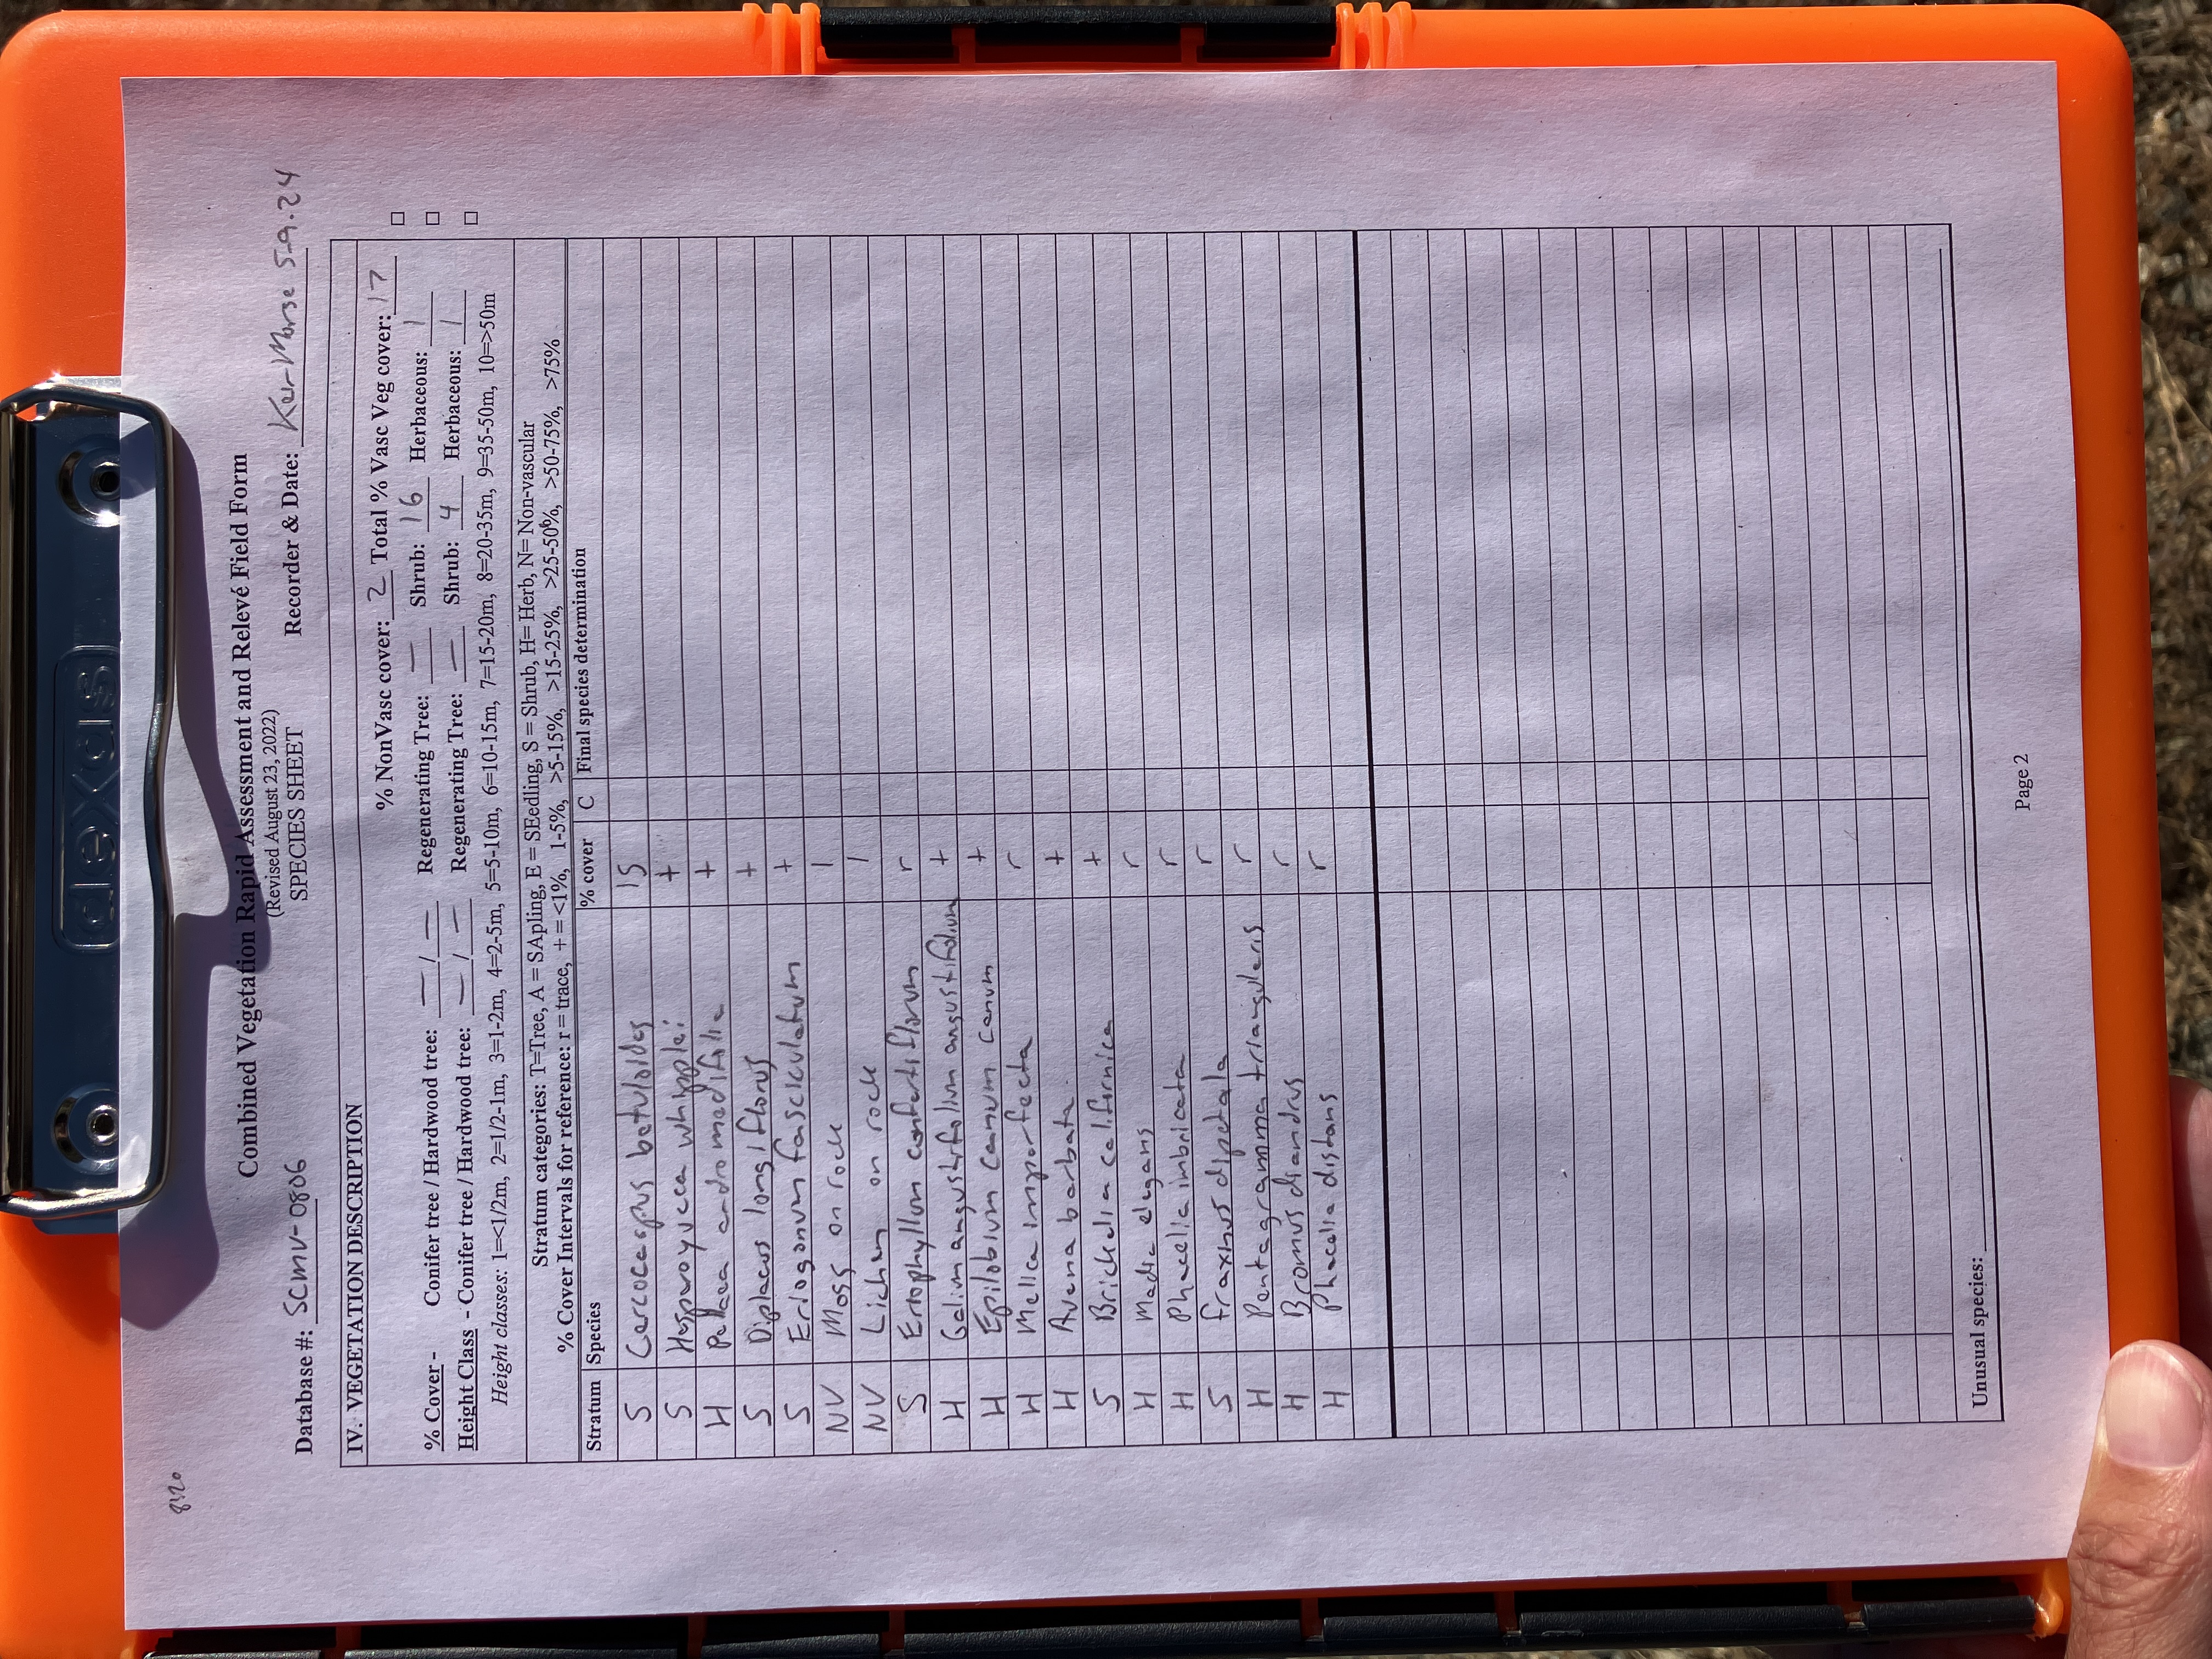 dexas
8:20
Combined Vegetation Rapid Assessment and Relevé Field Form
(Revised August 23, 2022)
SPECIES SHEET
Database #: SCMV-0806 Recorder & Date: 5-9-24
IV. VEGETATION DESCRIPTION
% NonVasc cover: 2 Total % Vasc Veg cover: 17
% Cover - Conifer tree / Hardwood tree: — / — Regenerating Tree: — Shrub: 16 Herbaceous: 1
Height Class - Conifer tree / Hardwood tree: — / — Regenerating Tree: — Shrub: 4 Herbaceous: 1
Height classes: 1=<1/2m, 2=1/2-1m, 3=1-2m, 4=2-5m, 5=5-10m, 6=10-15m, 7=15-20m, 8=20-35m, 9=35-50m, 10=>50m
Stratum categories: T=Tree, A = SApling, E = SEedling, S = Shrub, H= Herb, N= Non-vascular
% Cover Intervals for reference: r = trace, + = <1%, 1-5%, >5-15%, >15-25%, >25-50%, >50-75%, >75%
Stratum Species % cover C Final species determination
S Cercocarpus betuloides 15
S Hesperoyucca whipplei +
H Pellaea andromedifolia +
S Diplacus longiflorus +
S Eriogonum fasciculatum +
NV Moss on rock 1
NV Lichen on rock 1
S Eriophyllum confertiflorum r
H Galium angustifolium angustifolium +
H Epilobium canum canum +
H Melica imperfecta r
H Avena barbata +
S Brickellia californica +
H Madia elegans r
H Phacelia imbricata r
S Fraxinus dipetala r
H Pentagramma triangularis r
H Bromus diandrus r
H Phacelia distans r
Unusual species:
Page 2